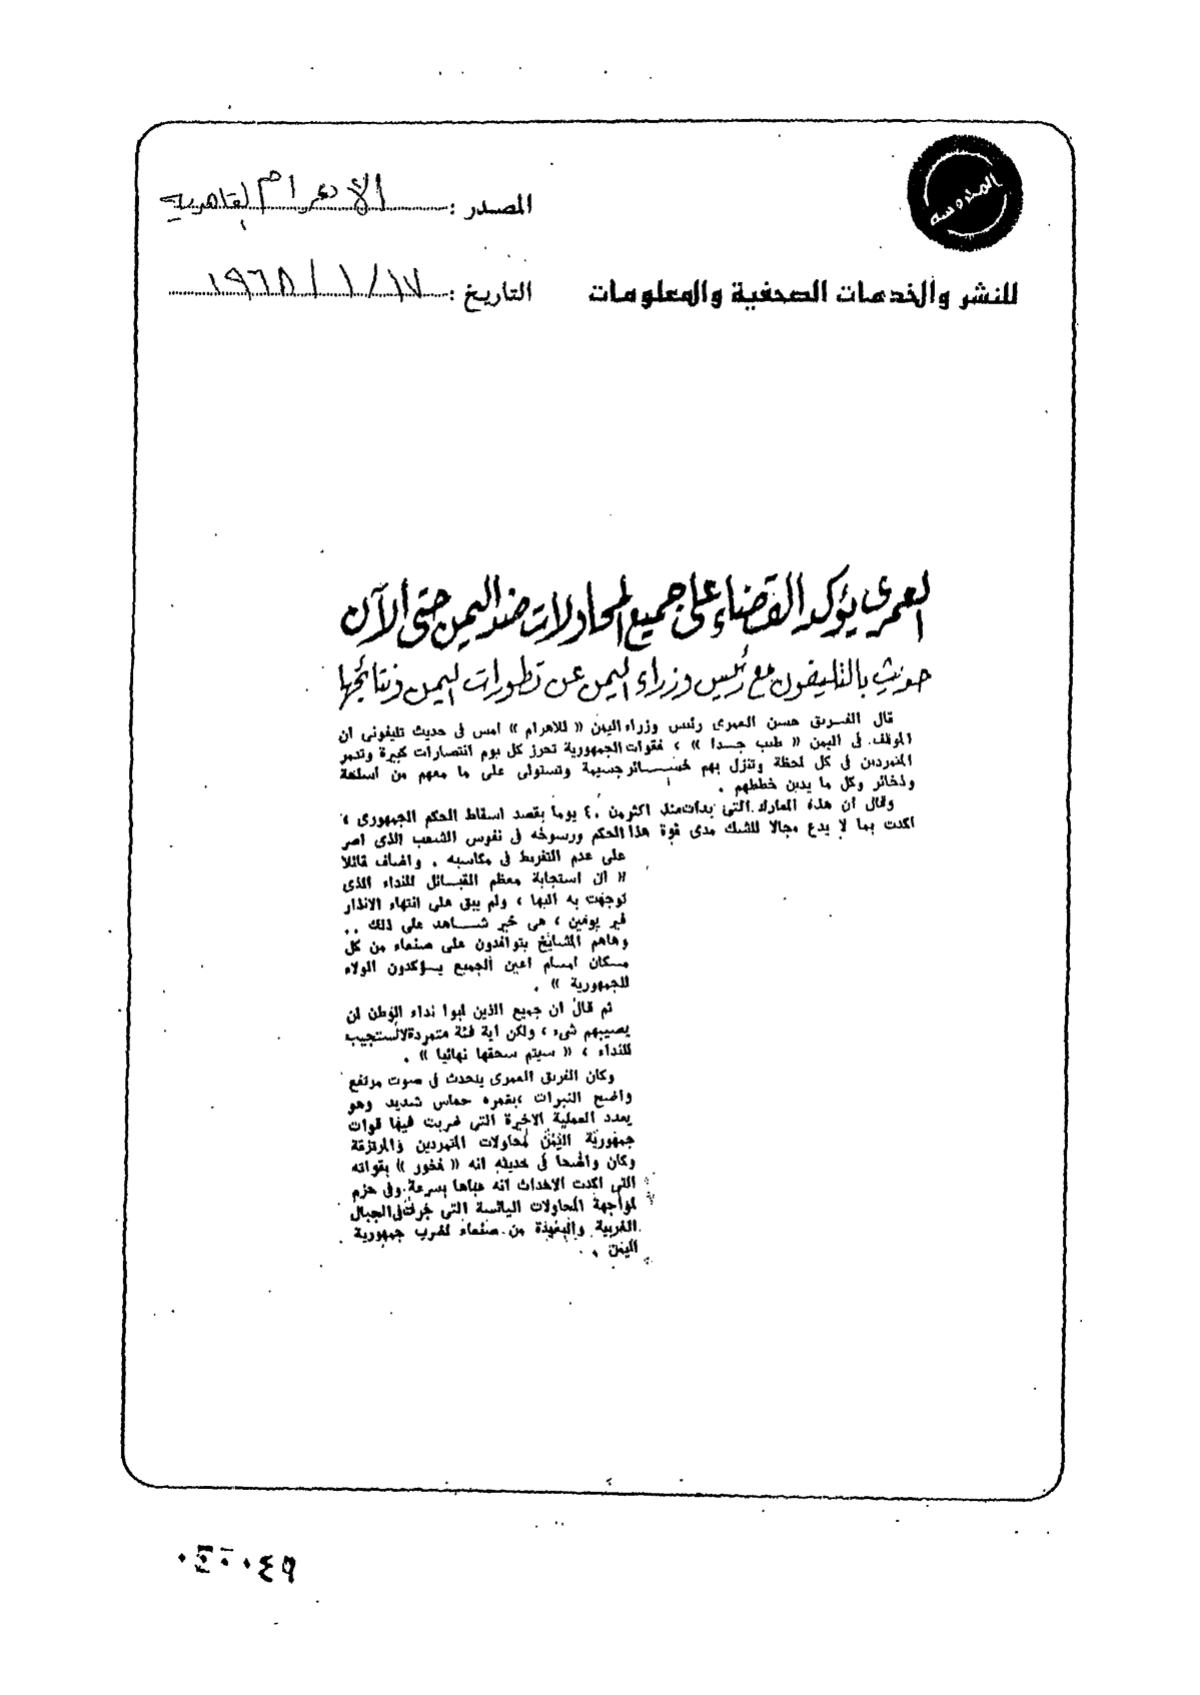 المدروسه
المصدر : الأهرام القاهرية
للنشر والخدمات الصحفية والمعلومات
التاريخ : ١٧ / ١ / ١٩٦٨
العمرى يؤكد القضاء على جميع المحاولات ضد اليمن حتى الآن
حديث بالتليفون مع رئيس وزراء اليمن عن تطورات اليمن ونتائجها
قال الفريق حسن العمرى رئيس وزراء اليمن « للاهرام » أمس فى حديث تليفونى ان
الموقف فى اليمن « طيب جدا » ، فقوات الجمهورية تحرز كل يوم انتصارات كبيرة وتدمر
المتمردين فى كل لحظة وتنزل بهم خسائر جسيمة وتستولى على ما معهم من أسلحة
وذخائر وكل ما يدبر خططهم .
وقال ان هذه المعارك التى بدأت منذ اكثر من ٤٠ يوما بقصد اسقاط الحكم الجمهورى ،
اكدت بما لا يدع مجالا للشك مدى قوة هذا الحكم ورسوخه فى نفوس الشعب الذى اصر
على عدم التفريط فى مكاسبه . واضاف قائلا
« ان استجابة معظم القبائل للنداء الذى
توجهت به اليها ، ولم يبق على انتهاء الانذار
غير يومين ، هى خير شاهد على ذلك ..
وهاهم المشايخ يتوافدون على صنعاء من كل
مكان امام اعين الجميع يؤكدون الولاء
للجمهورية » .
ثم قال ان جميع الذين لبوا نداء الوطن لن
يصيبهم شىء ، ولكن اية فئة متمردة لاتستجيب
للنداء ، « سيتم سحقها نهائيا » .
وكان الفريق العمرى يتحدث فى صوت مرتفع
واضح النبرات ،يغمره حماس شديد وهو
يعدد العملية الاخيرة التى ضربت فيها قوات
جمهورية اليمن لمحاولات المتمردين والمرتزقة
وكان واضحا فى حديثه انه « فخور » بقواته
التى اكدت الاحداث انه عباها بسرعة وفى حزم
لمواجهة المحاولات اليائسة التى جرت فى الجبال
القريبة والبعيدة من صنعاء لضرب جمهورية
اليمن .